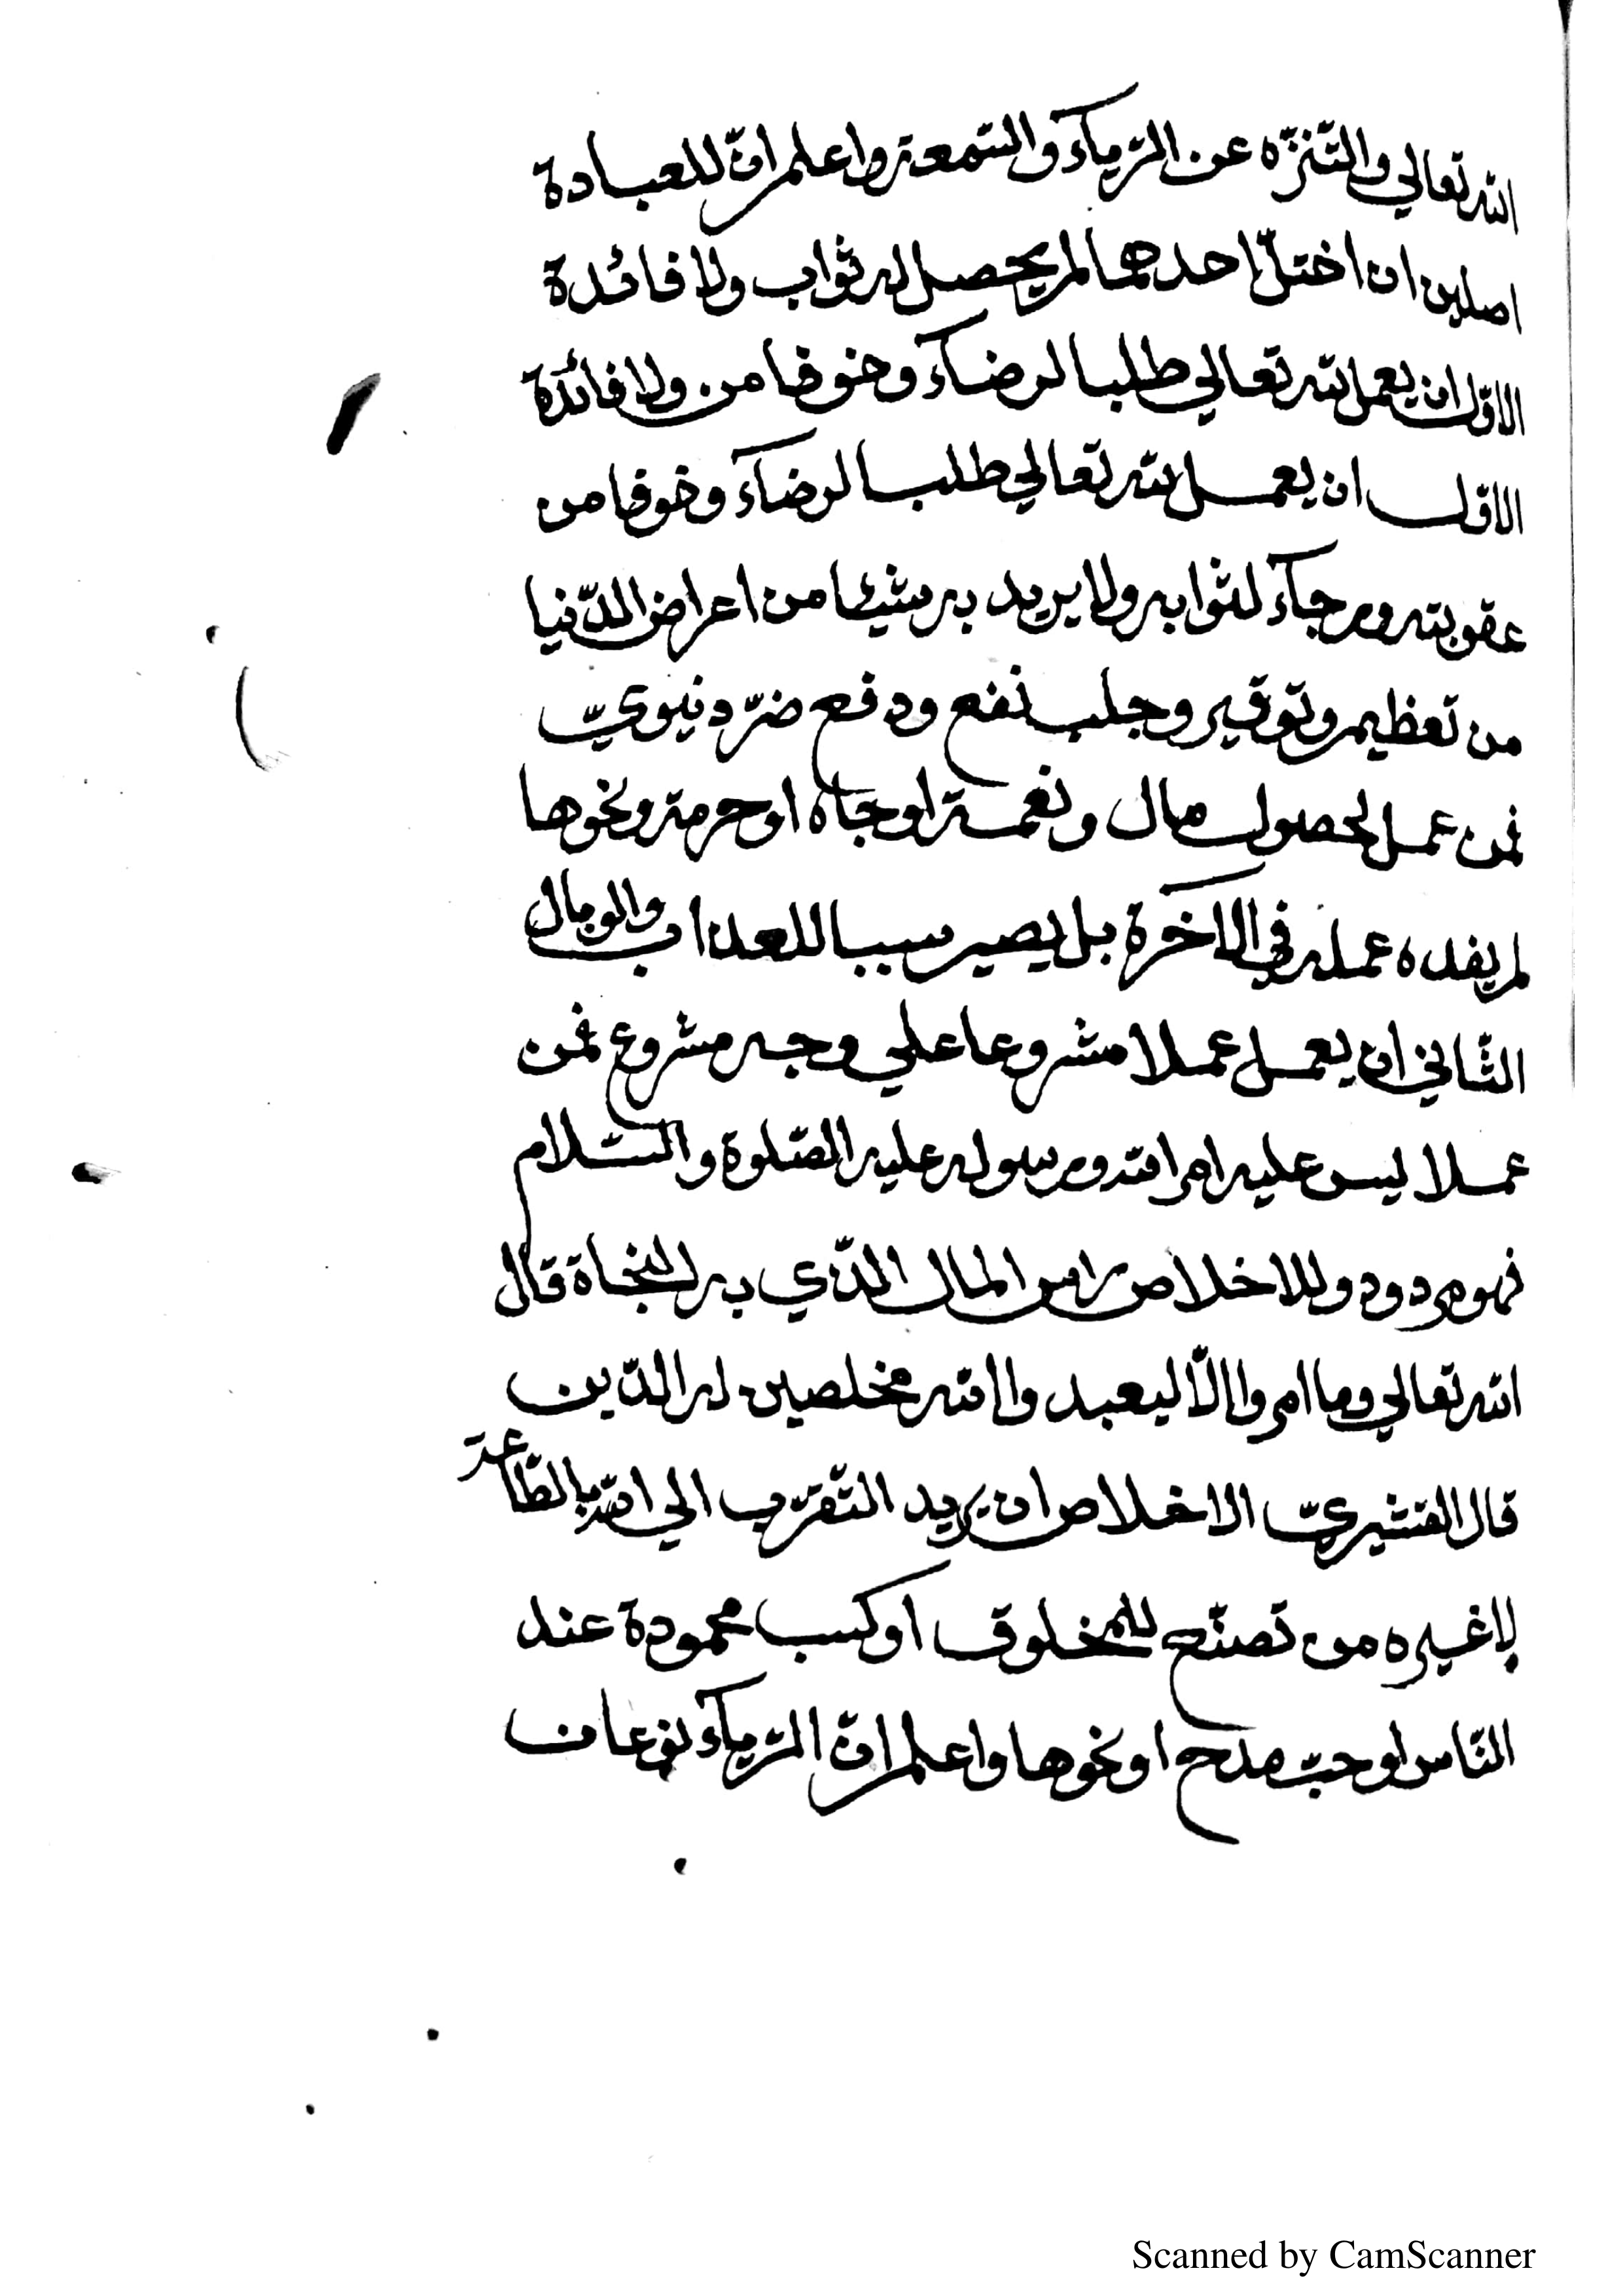 الله تعالي والتّنزّه عن الرّيآء والسّمعة واعلم انّ للعبادة
اصلين ان اختلّ احدهما لم يحصل له ثواب ولا فائدة
الاوّل ان يعمل لله تعالي طلبا لرضآء وخوفا من ولا فائدة
الاوّل ان يعمل لله تعالي طلبا لرضآء وخوفا من
عقوبته ورجآء لثوابه ولا يريد به شيئا من اعراض الدّنيا
من تعظيم وتوقير وجلب نفع ودفع ضرّ دنيويّ
فمن عمل لحصول مال ونعمة او جاه او حرمة ونحوها
لم يفده عمله في الآخرة بل يصير سببا للعذاب والوبال
الثّاني ان يعمل عملا مشروعا علي وجه مشروع فمن
عملا ليس عليه امر الله ورسوله عليه الصّلوة والسّلام
فهو مردود وللاخلاص راس المال الذّي به النجاة قال
الله تعالي وما امروا الّا ليعبدوا الله مخلصين له الدّين
قال القشيريّ الاخلاص ان يريد التّقرّب الي الله بالطّاعة
لا غيره من تصنّع للمخلوق او كسب محمودة عند
النّاس او حبّ مدح او نحوها واعلم انّ الرّيآء نوعان
Scanned by CamScanner